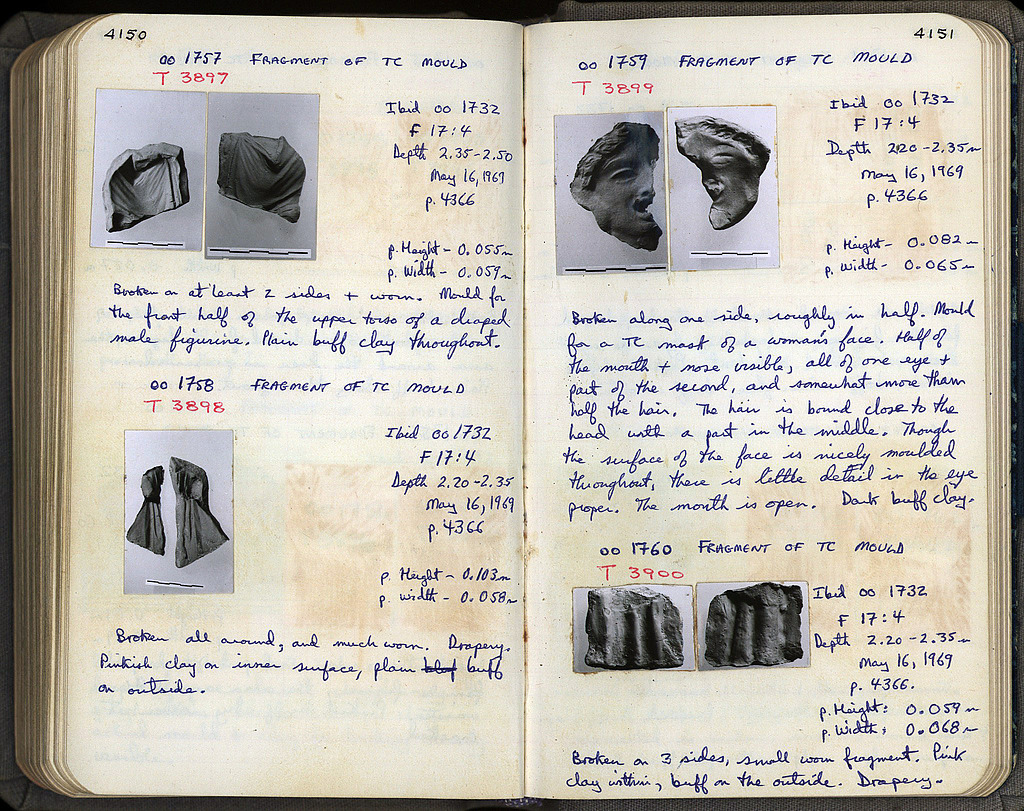 4150
oo 1757 FRAGMENT OF TC MOULD
T 3897
Ibid oo 1732
F 17:4
Depth 2.35-2.50
May 16, 1969
p. 4366
p. Height - 0.055m
p. Width - 0.059m
Broken on at least 2 sides + worn. Mould for
the front half of the upper torso of a draped
male figurine. Plain buff clay throughout.
oo 1758 FRAGMENT OF TC MOULD
T 3898
Ibid oo 1732
F 17:4
Depth 2.20-2.35
May 16, 1969
p. 4366
p. Height - 0.103m
p. width - 0.058m
Broken all around, and much worn. Drapery.
Pinkish clay on inner surface, plain buff
on outside.
4151
oo 1759 FRAGMENT OF TC MOULD
T 3899
Ibid oo 1732
F 17:4
Depth 2.20-2.35m
May 16, 1969
p. 4366
p. Height - 0.082m
p. Width - 0.065m
Broken along one side, roughly in half. Mould
for a TC mask of a woman's face. Half of
the mouth + nose visible, all of one eye +
part of the second, and somewhat more than
half the hair. The hair is bound close to the
head with a part in the middle. Though
the surface of the face is nicely moulded
throughout, there is little detail in the eye
proper. The mouth is open. Dark buff clay.
oo 1760 FRAGMENT OF TC MOULD
T 3900
Ibid oo 1732
F 17:4
Depth 2.20-2.35m
May 16, 1969
p. 4366.
p. Height: 0.059m
p. Width: 0.068m
Broken on 3 sides, small worn fragment. Pink
clay within, buff on the outside. Drapery.